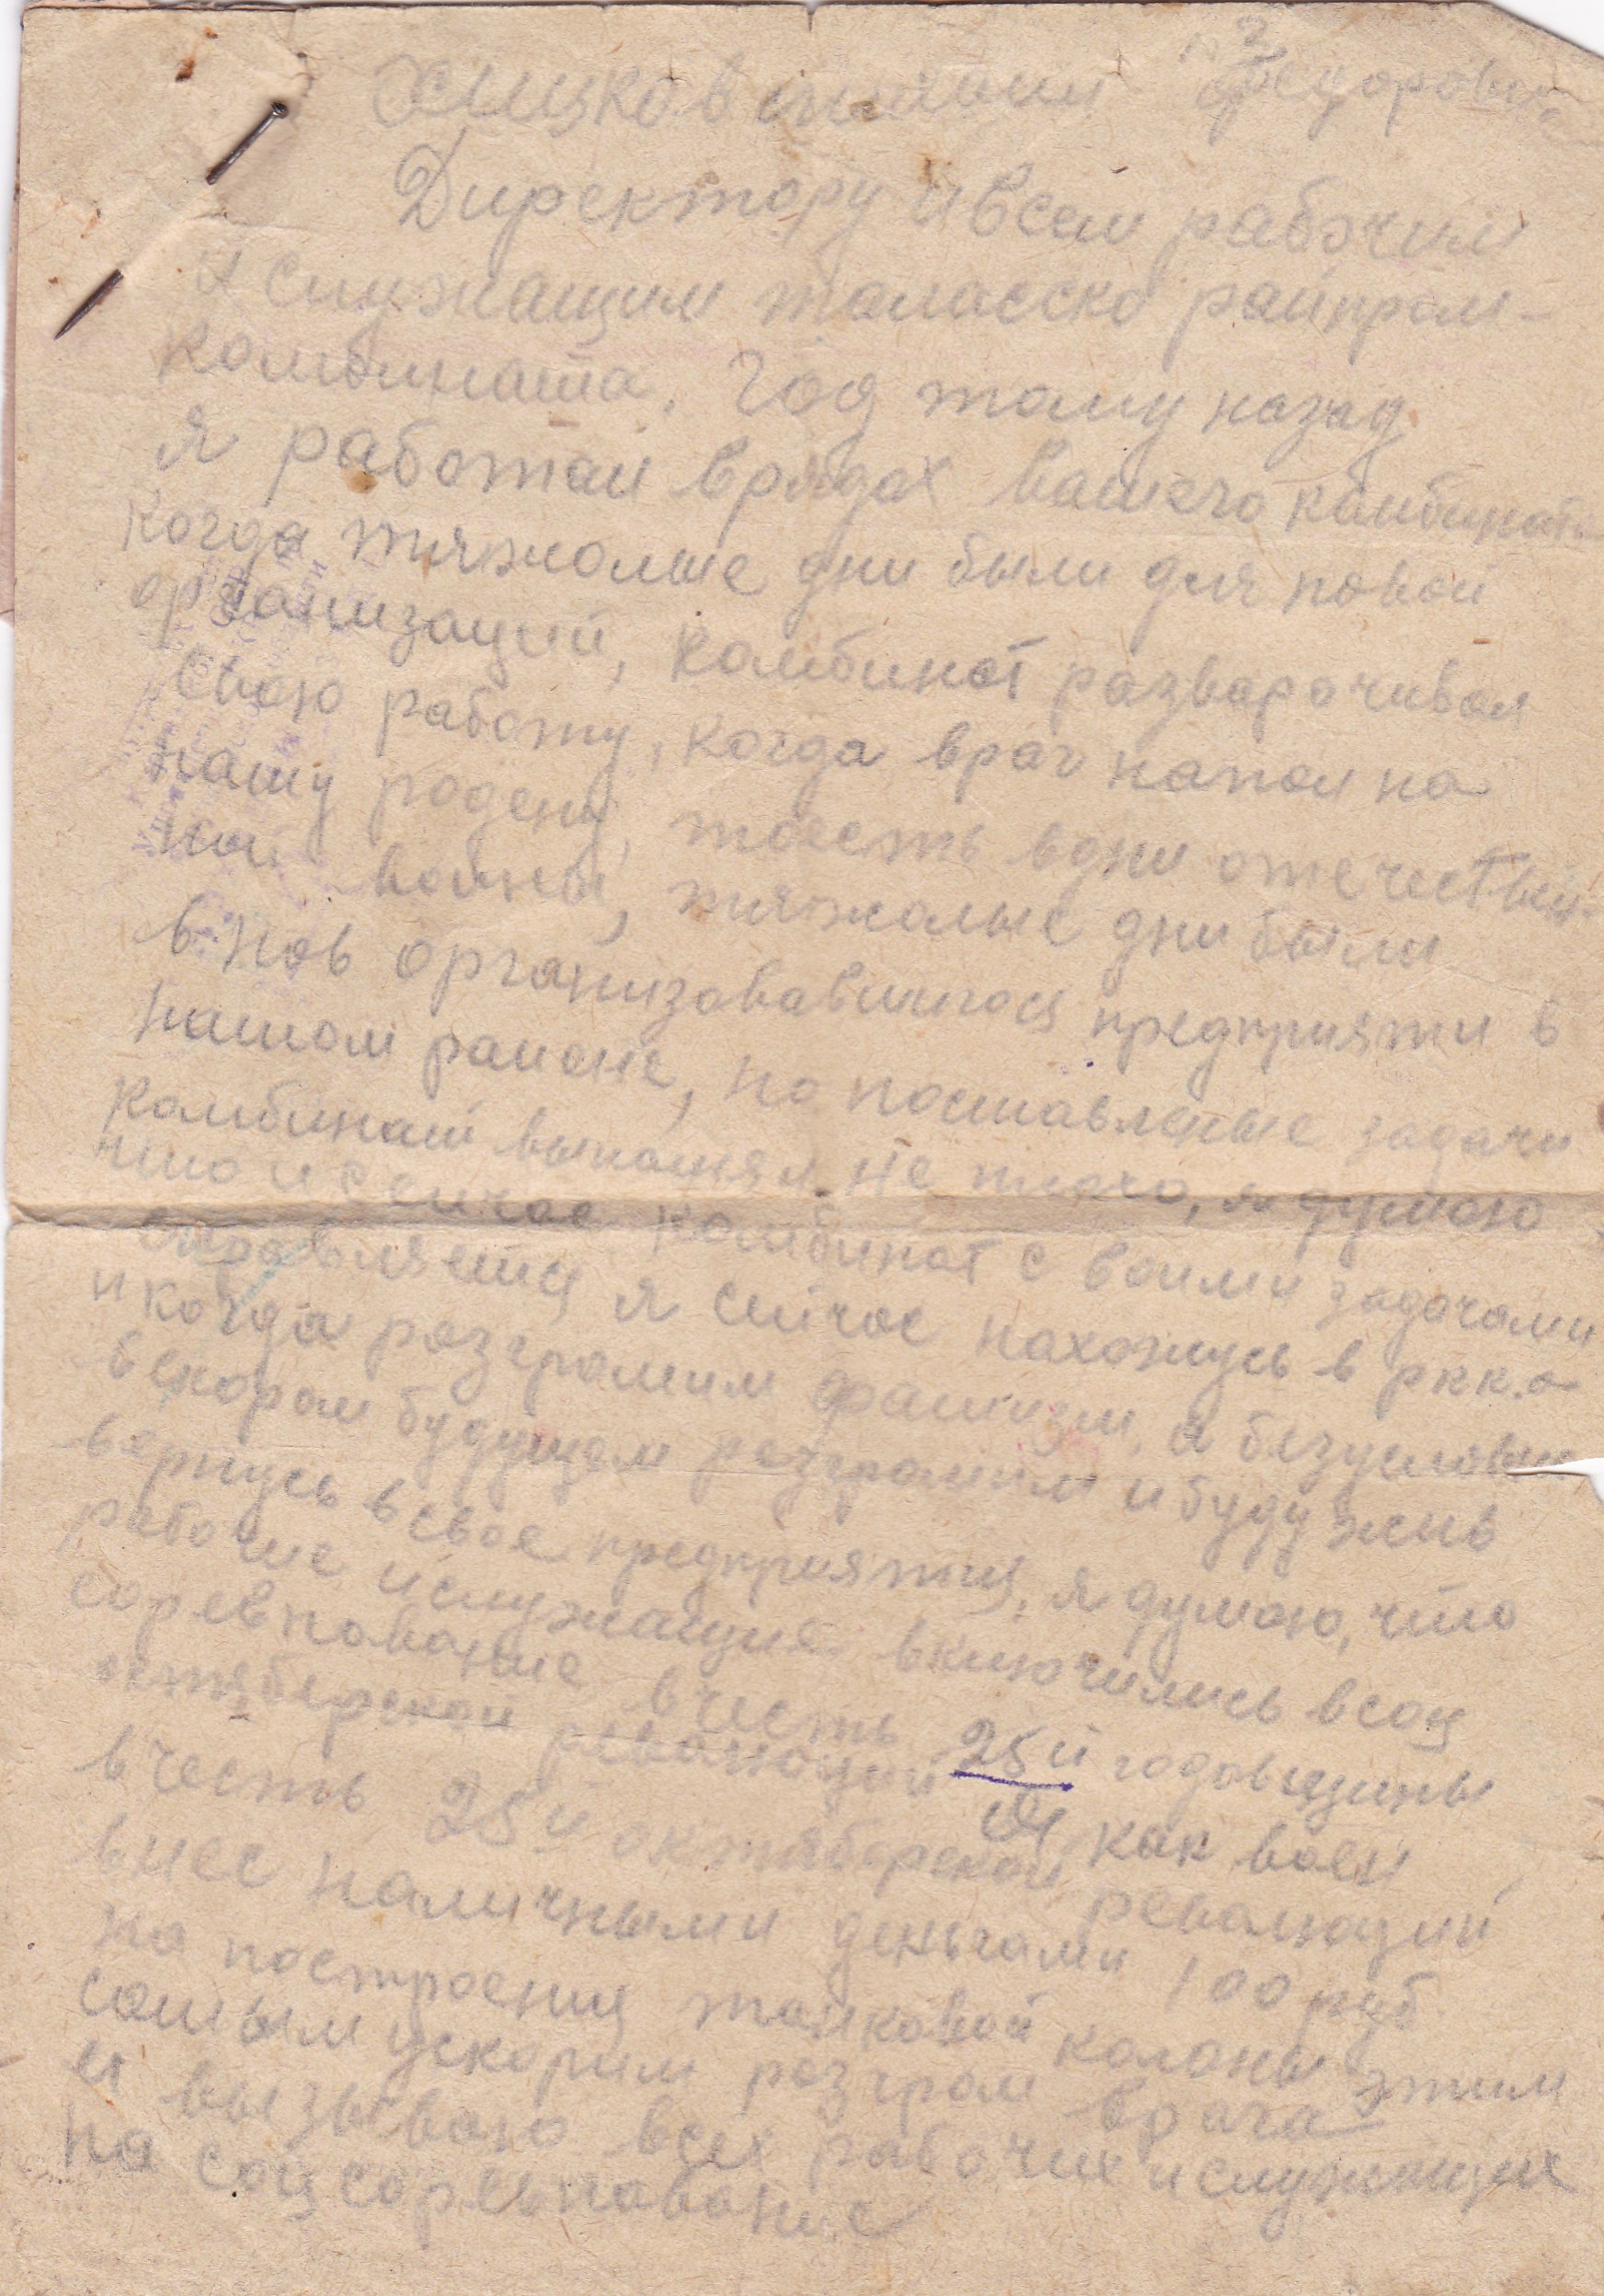 Директору и всем рабочим
и служащим таласско райпром-
комбината. Год тому назад
я работал врядах вашего комбината
когда тяжолые дни были для новой
организаций, комбинат разворочивал
свою работу, когда враг напал на
нашу родену, тоесть вдни отечествен-
ной войны, тяжолые дни были
внов организовавшигося предприяти в
нашом районе, но поставленые задачи
комбинат выполнял не плохо, я думаю
что и сейчас комбинат с воими задачами
справляетця я сейчас нахожусь в ркк.а
и когда розгромим фашизм, а безусловно
вскором будущем розгромим и буду жив
вернусь всвое предприятия, я думаю, что
рабочие ислужащие включились всоц
соревнование вчесть 25й годовщины
октяберской революций Я как воен
вчесть 25й октяберской революций
внес наличными деньгами 100 руб.
на построения танковой колоны этим
самым ускорим розгром врага
и вызываю всех рабочих ислужащих
на соцсоревнование